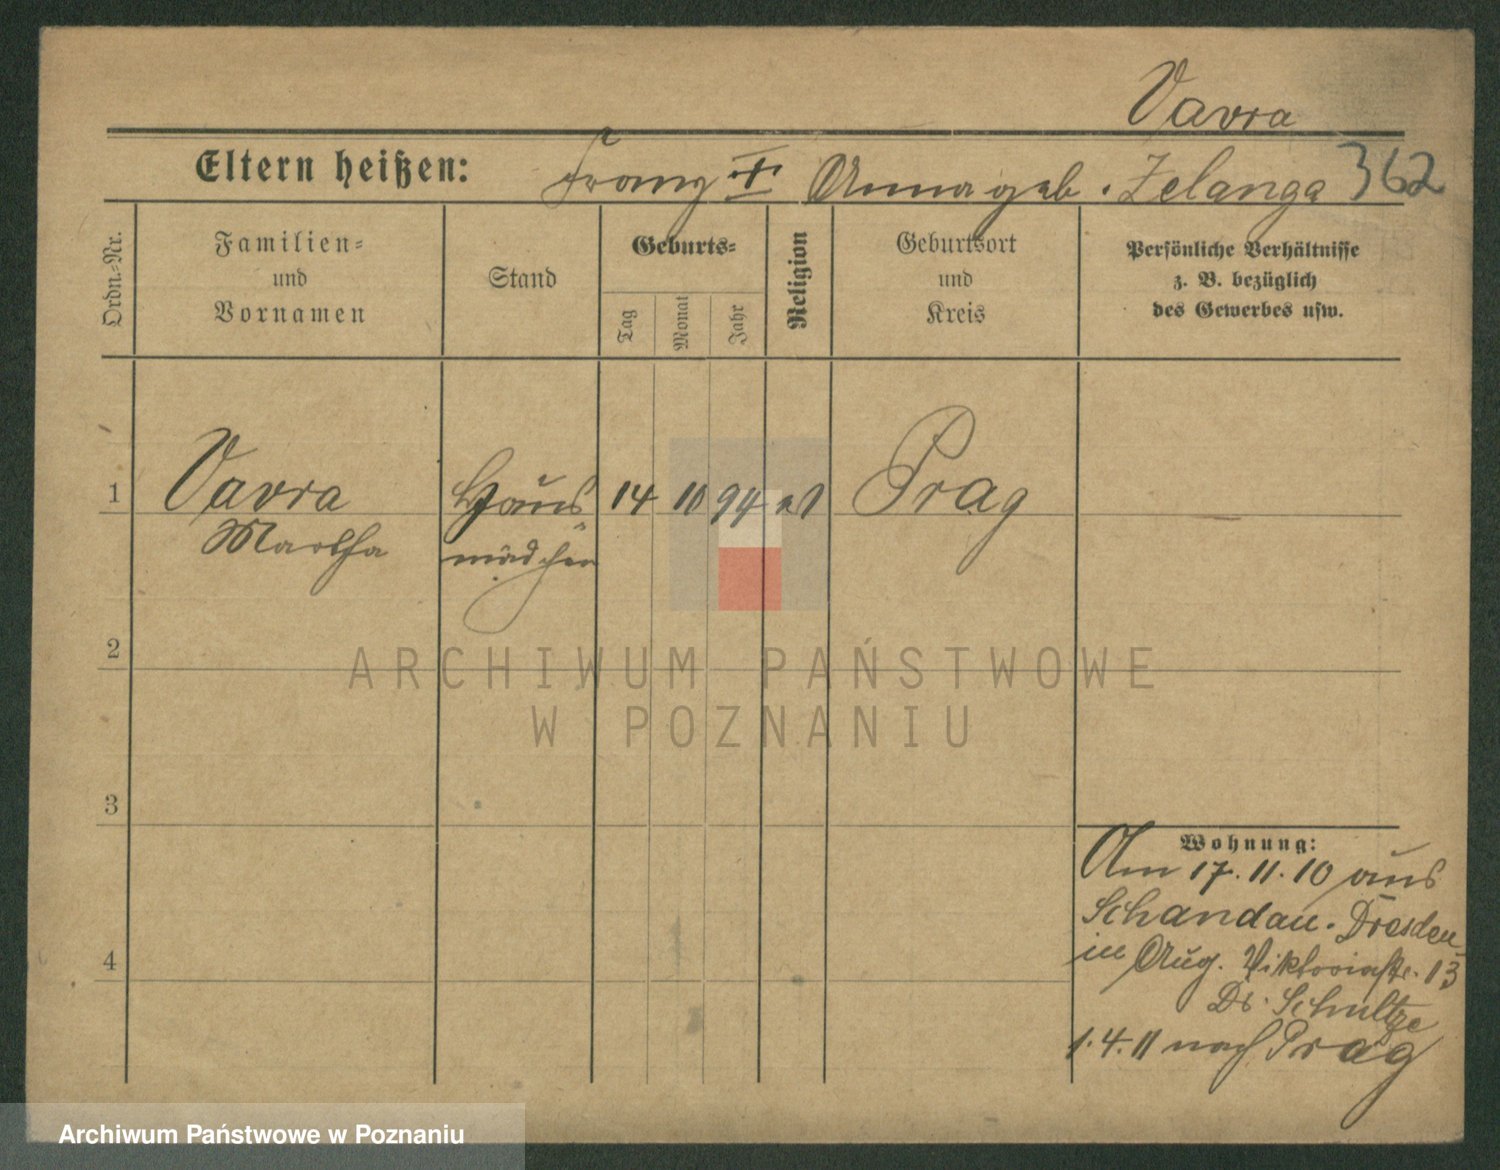 Vavra
Eltern heißen: Franz + Anna geb. Zelanga 362
Ordn.-Nr.
Familien-
und
Vornamen
Stand
Geburts-
Tag
Monat
Jahr
Religion
Geburtsort
und
Kreis
Persönliche Verhältnisse
z. B. bezüglich
des Gewerbes usw.
1 Vavra Haus 14 10 94 Prag
Martha mädchen
2
ARCHIWUM PAŃSTWOWE
W POZNANIU
3
Wohnung:
Am 17.11.10 aus
Schandau. Dresden
4 in Aug. Viktoriastr. 13
Dr. Schultze
1.4.11 nach Prag
Archiwum Państwowe w Poznaniu